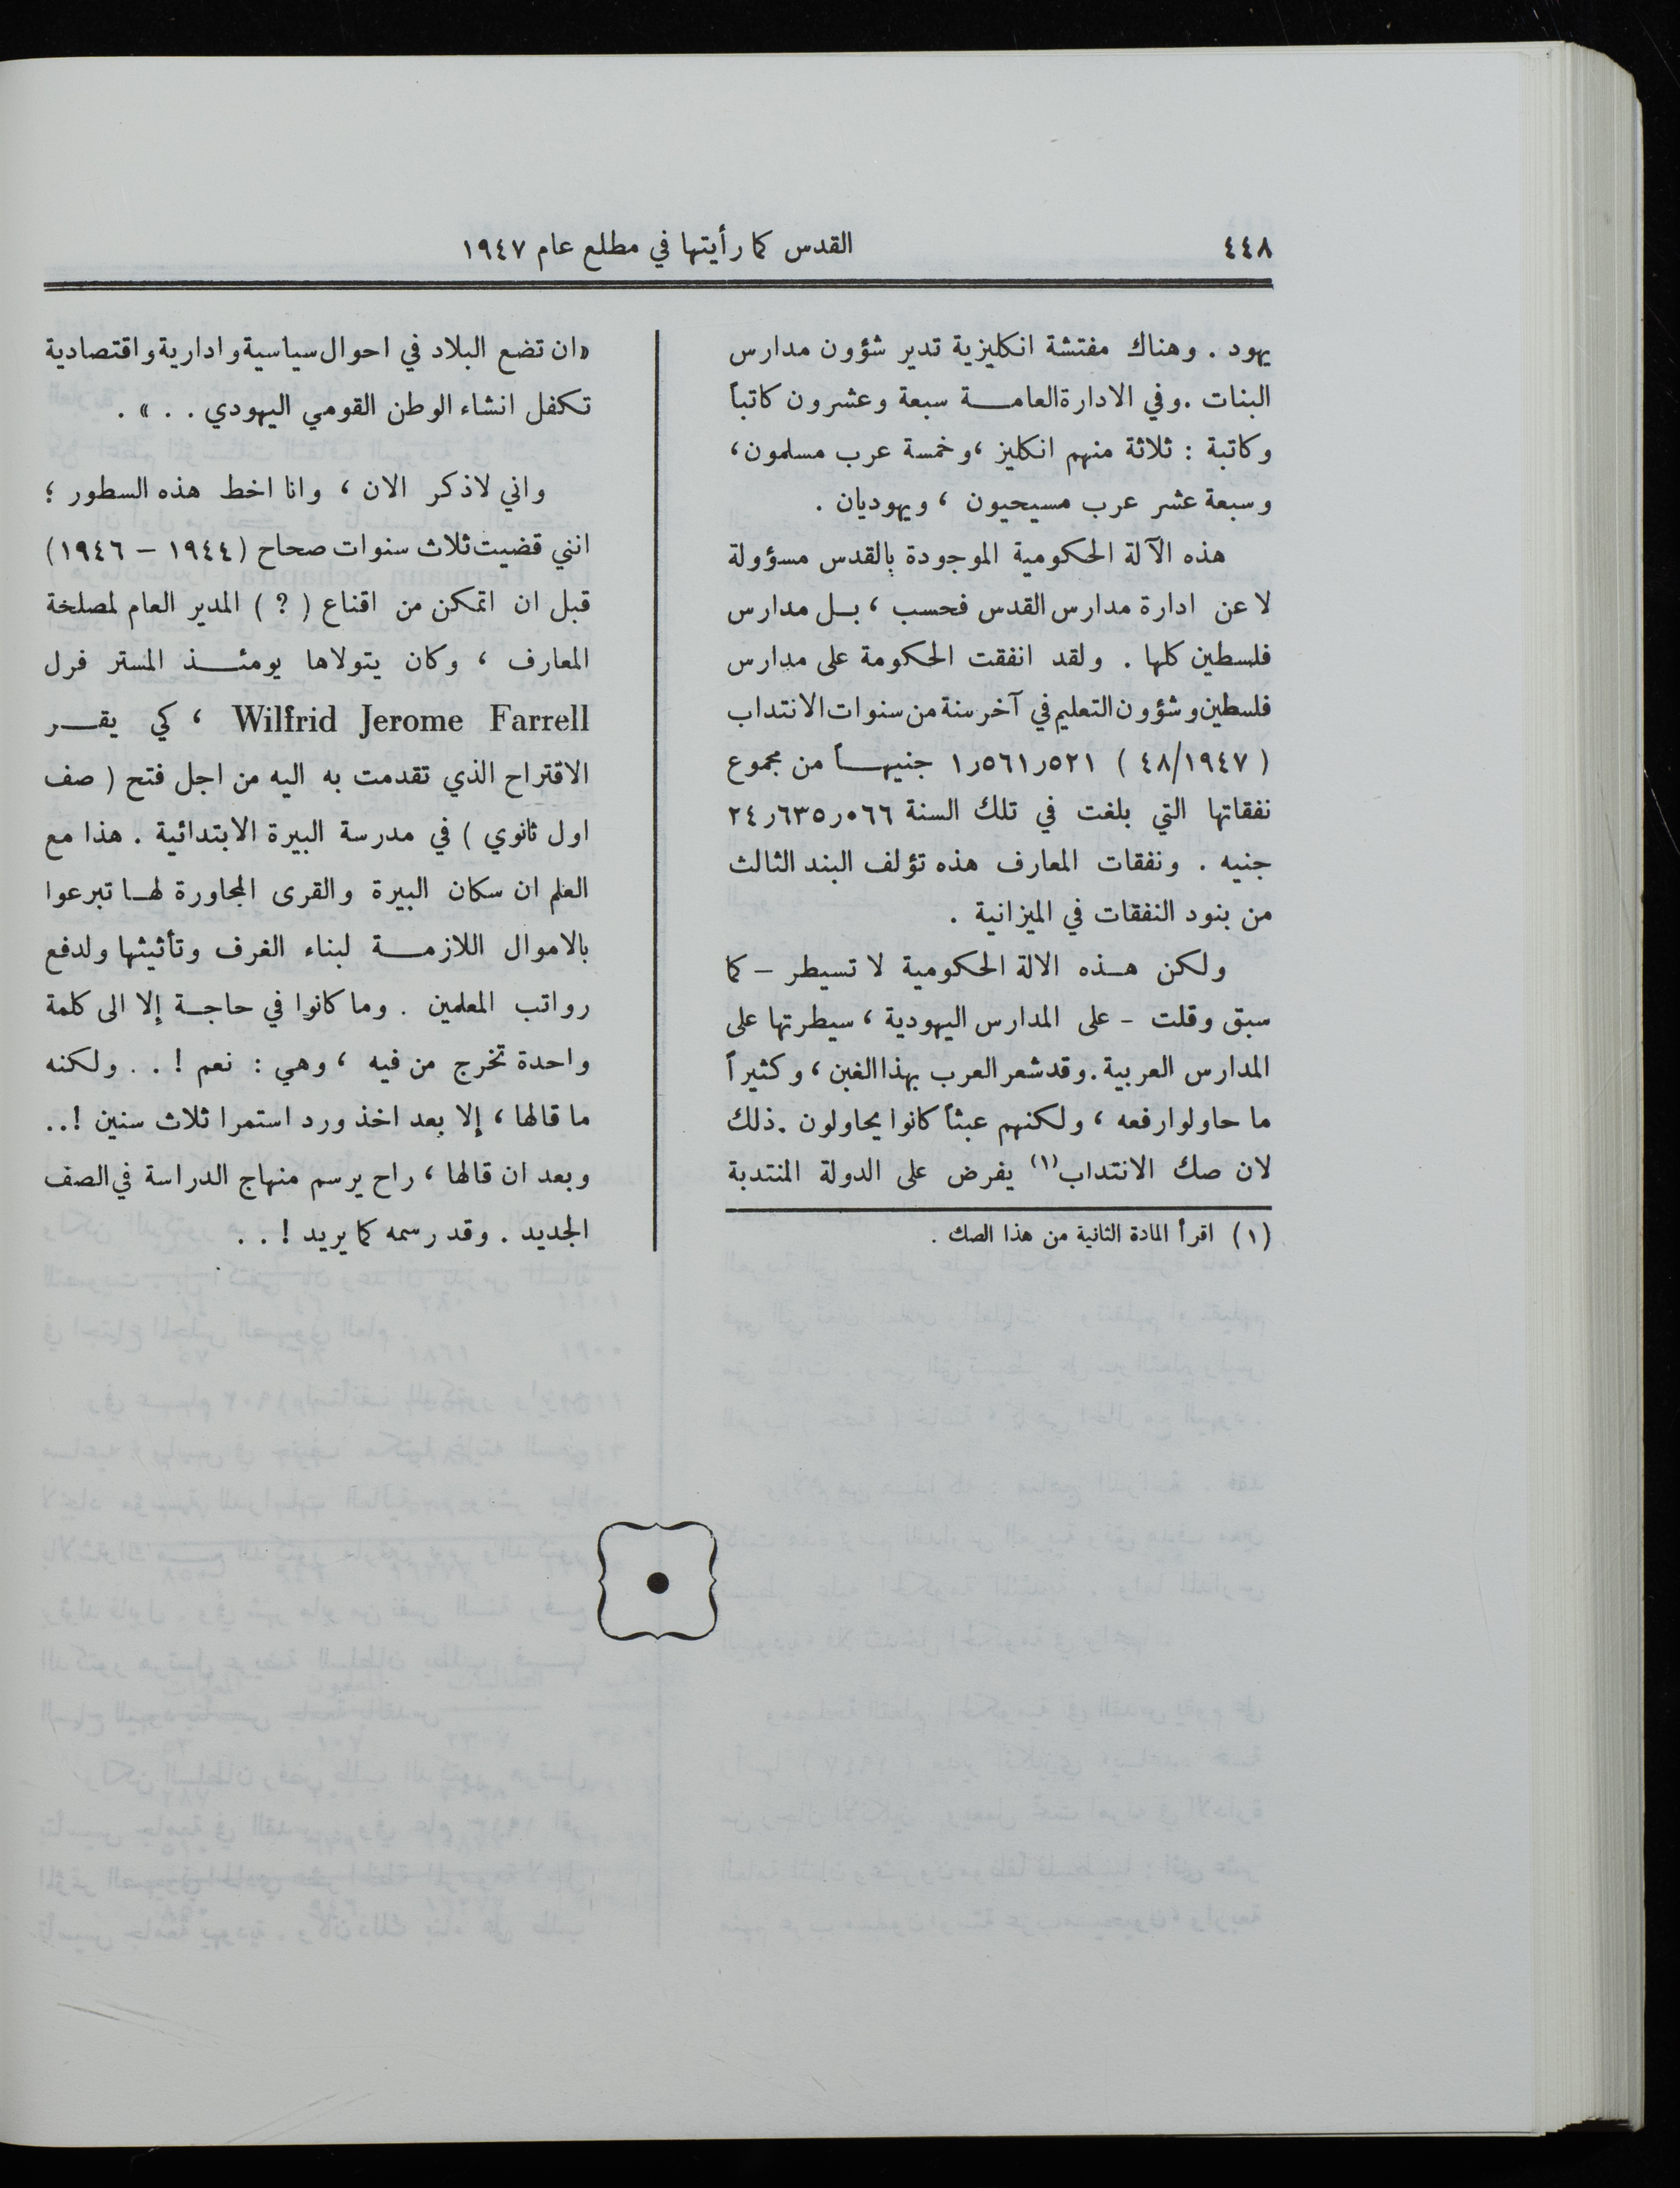 ٤٤٨
القدس كما رأيتها في مطلع عام ١٩٤٧
يهود . وهناك مفتشة انكليزية تدير شؤون مدارس
البنات . وفي الادارة العامة سبعة وعشرون كاتباً
وكاتبة : ثلاثة منهم انكليز ، وخمسة عرب مسلمون ،
وسبعة عشر عرب مسيحيون ، ويهوديان .
هذه الآلة الحكومية الموجودة بالقدس مسؤولة
لا عن ادارة مدارس القدس فحسب ، بل مدارس
فلسطين كلها . ولقد انفقت الحكومة على مدارس
فلسطين وشؤون التعليم في آخر سنة من سنوات الانتداب
( ٤٨/١٩٤٧ ) ١٫٥٦١٫٥٢١ جنيهاً من مجموع
نفقاتها التي بلغت في تلك السنة ٢٤٫٦٣٥٫٠٦٦
جنيه . ونفقات المعارف هذه تؤلف البند الثالث
من بنود النفقات في الميزانية .
ولكن هذه الالة الحكومية لا تسيطر – كما
سبق وقلت – على المدارس اليهودية ، سيطرتها على
المدارس العربية . وقد شعر العرب بهذا الغبن ، وكثيراً
ما حاولوا رفعه ، ولكنهم عبثاً كانوا يحاولون . ذلك
لان صك الانتداب (١) يفرض على الدولة المنتدبة
(١) اقرأ المادة الثانية من هذا الصك .
«ان تضع البلاد في احوال سياسية وادارية واقتصادية
تكفل انشاء الوطن القومي اليهودي . . » .
واني لاذكر الان ، وانا اخط هذه السطور ؛
انني قضيت ثلاث سنوات صحاح (١٩٤٤ – ١٩٤٦)
قبل ان اتمكن من اقناع ( ? ) المدير العام لمصلحة
المعارف ، وكان يتولاها يومئذ المستر فرل
Wilfrid Jerome Farrell ، كي يقر
الاقتراح الذي تقدمت به اليه من اجل فتح ( صف
اول ثانوي ) في مدرسة البيرة الابتدائية . هذا مع
العلم ان سكان البيرة والقرى المجاورة لها تبرعوا
بالاموال اللازمة لبناء الغرف وتأثيثها ولدفع
رواتب المعلمين . وما كانوا في حاجة إلا الى كلمة
واحدة تخرج من فيه ، وهي : نعم ! . . ولكنه
ما قالها ، إلا بعد اخذ ورد استمرا ثلاث سنين ! . .
وبعد ان قالها ، راح يرسم منهاج الدراسة في الصف
الجديد . وقد رسمه كما يريد ! . .